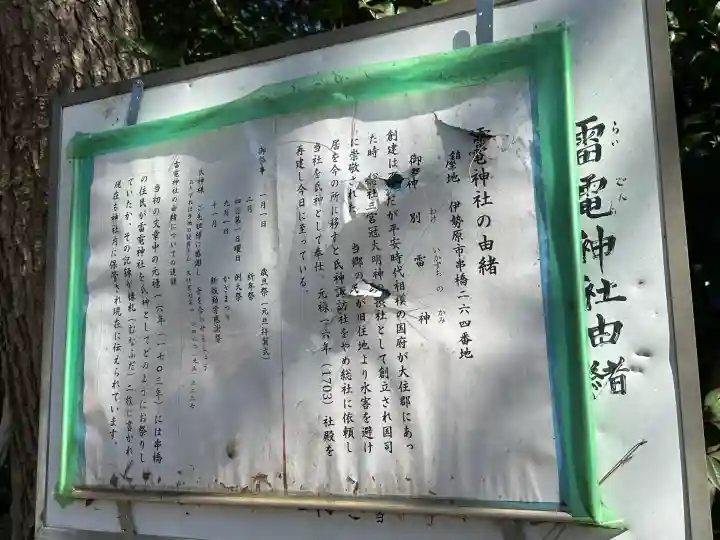 雷電神社由緒
らい でん
雷電神社の由緒
鎮座地 伊勢原市串橋二六四番地
御祭神 別雷神
わけ いかずち の かみ
創建は だが平安時代相模の国府が大住郡にあっ
た時 総社三宮冠大明神 祭社として創立され国司
に崇敬され 当郷の が旧住地より水害を避け
居を今の所に移すと氏神諏訪社をやめ総社に依頼し
当社を氏神として奉仕 元禄一六年(1703)社殿を
再建し今日に至っている。
御祭事 一月一日 歳旦祭(元旦祈賀式)
二月 新年祭
四月第一日曜日 例大祭
九月一日 かざまつり
十一月 新穀勤労感謝祭
氏神様、ご先祖様に感謝し
雷電神社の由緒についての追録
当初の文章中の元禄一六年(一七〇三年)には串橋
の住民が雷電神社を氏神としてどのようにお祭りし
ていたか、その記録が棟札(むなふだ)二枚に書かれ
現在も神社舟に保管され現在に伝えられています。